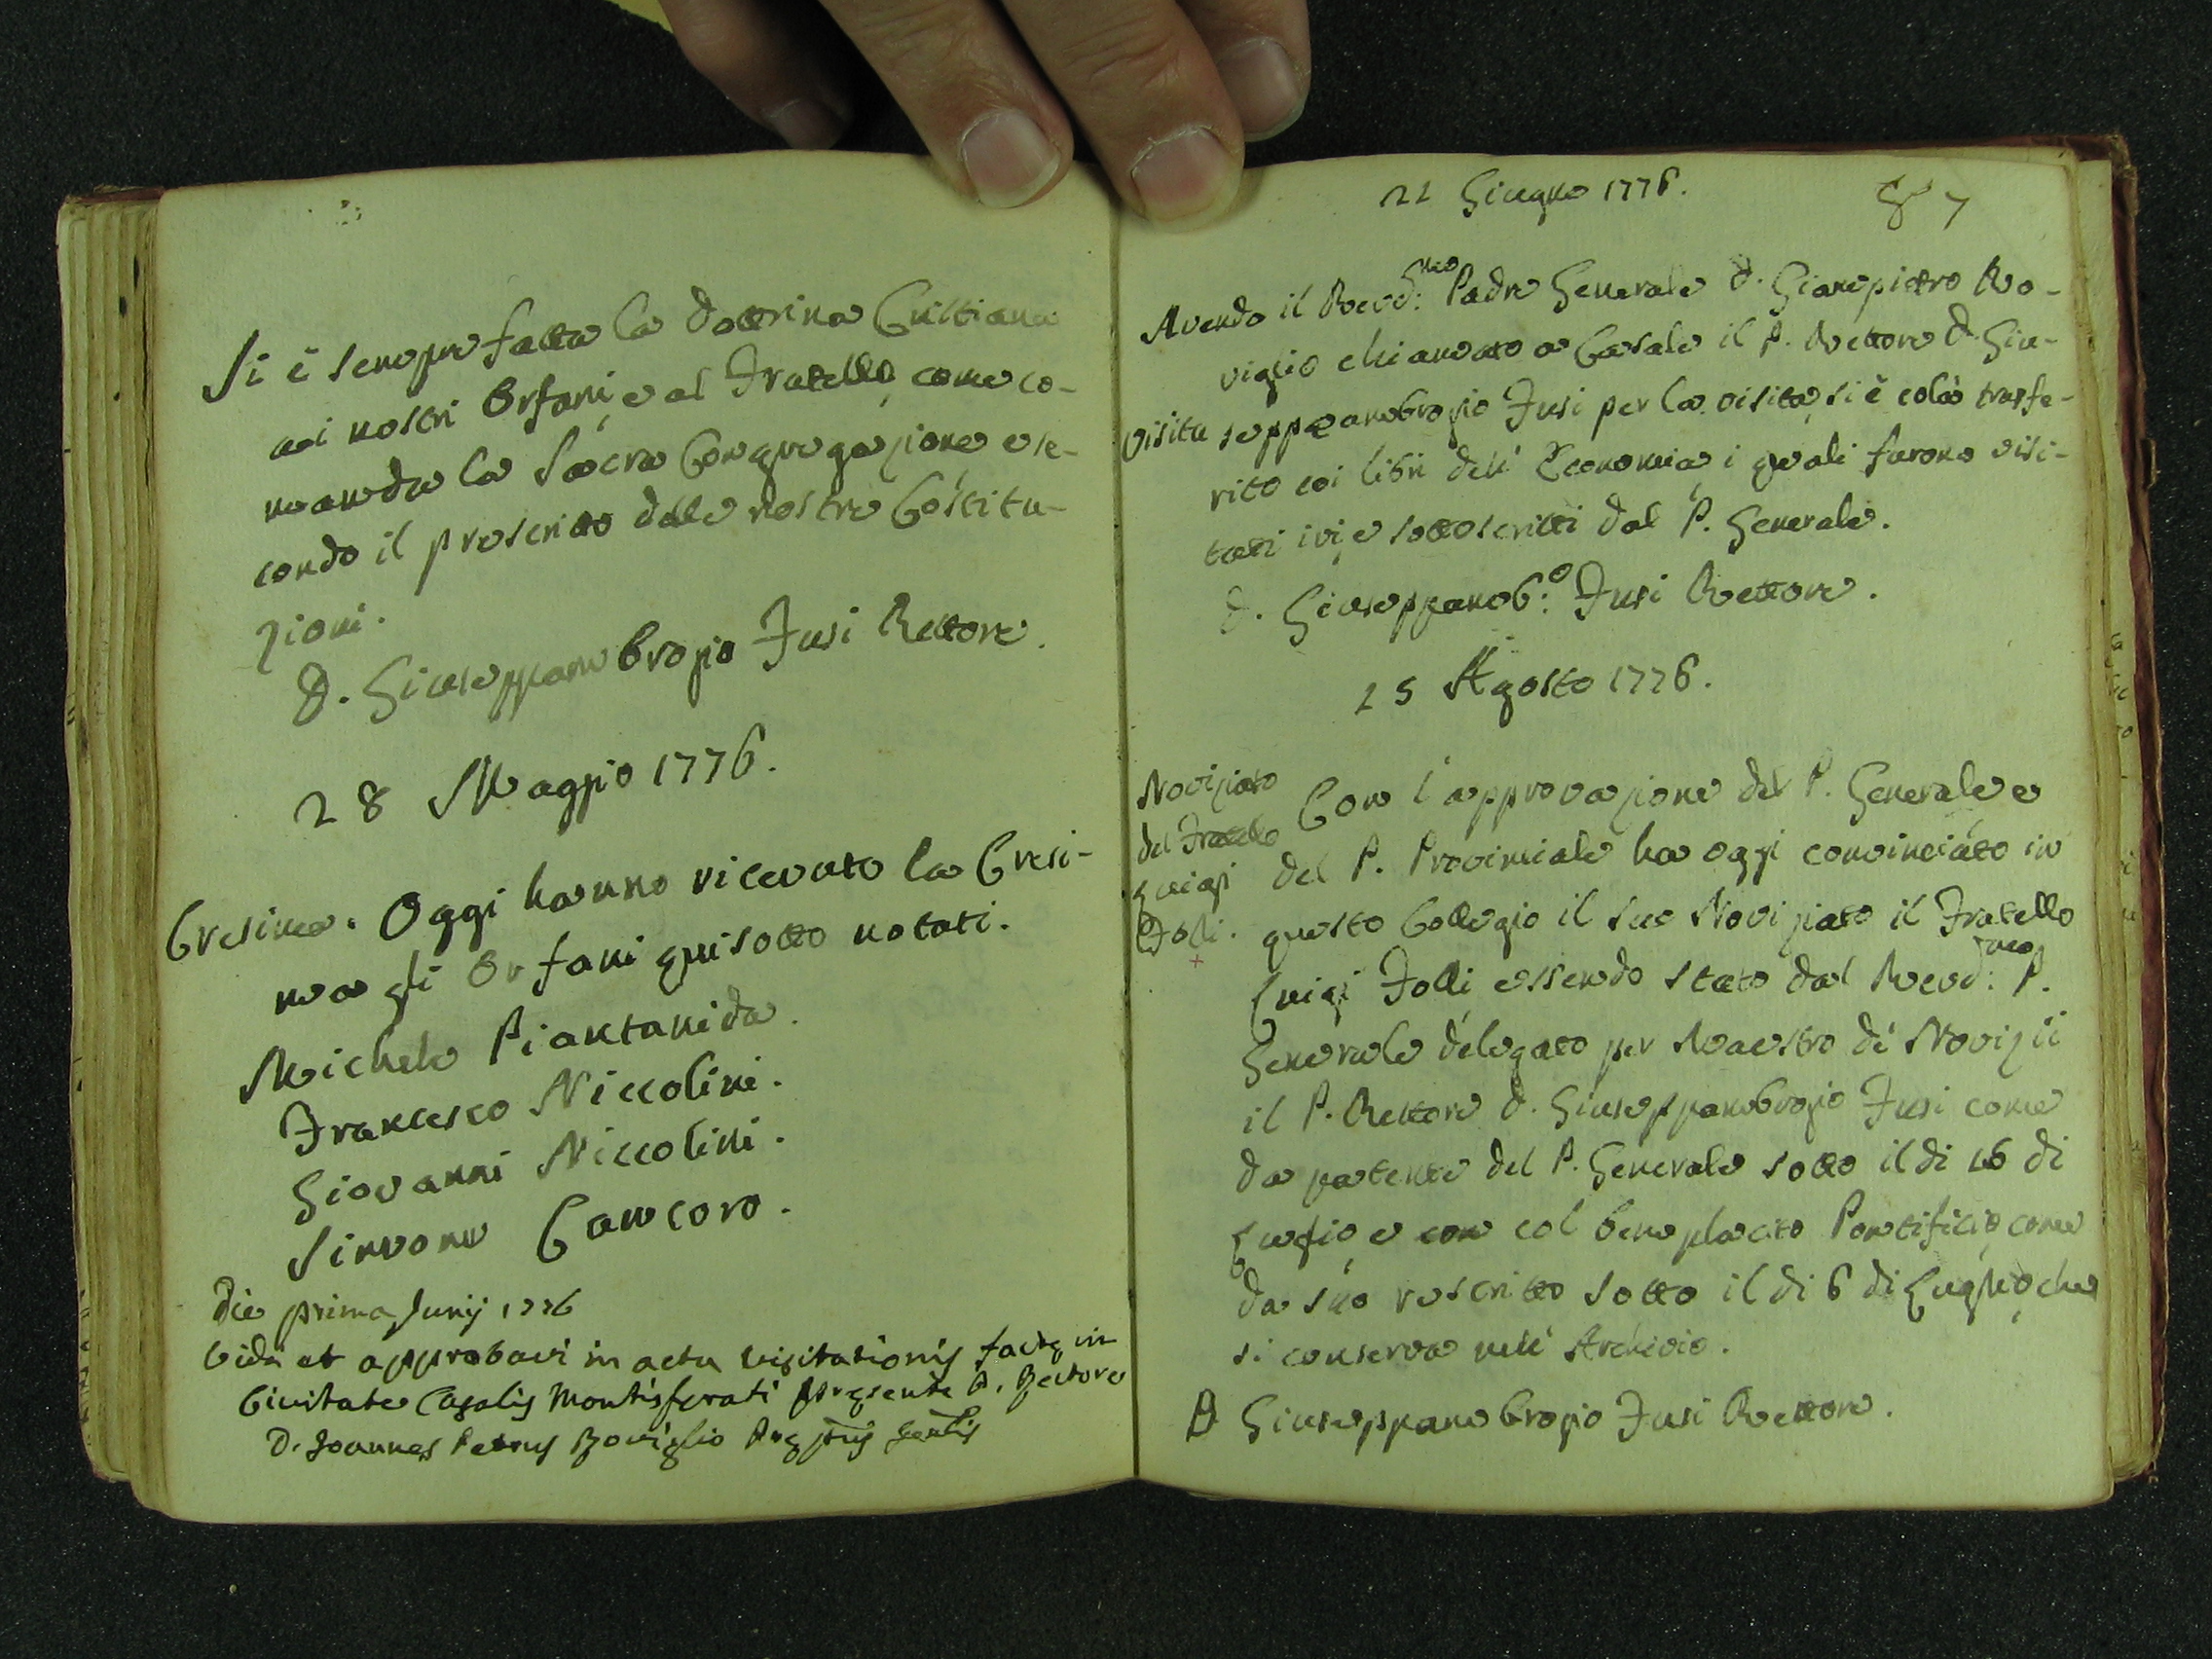 Si è sempre fatta la dottrina Cristiana
ai nostri Orfani, e al Fratello, come co-
manda la Sacra Congregazione e se-
condo il prescritto delle nostre Costitu-
zioni.
D. Giuseppambrogio Fusi Rettore.
28 Maggio 1776.
Cresima. Oggi hanno ricevuto la Cresi-
ma gli Orfani qui sotto notati.
Michele Piantanida.
Francesco Niccolini.
Giovanni Niccolini.
Simone Cancoro.
Die prima Junij 1776
Vidi et approbavi in actu visitationis factę in
Civitate Casalis Montisferati pręsente P. Rectore
D. Joannes Petrus Roviglio Pręptus Gentlis
22 Giugno 1776.
87
Avendo il Revd:mo Padre Generale D. Giampietro Ro-
viglio chiamato a Casale il P. Rettore D. Giu-
visita seppeambrogio Fusi per la visita, si è colà trasfe-
rito coi libri dell' Economia, i quali furono visi-
tati ivi, e sottoscritti dal P. Generale.
D. Giuseppamb:o Fusi Rettore.
25 Agosto 1776.
Noviziato
del Fratello
Luigi
Folli.
Con l'approvazione del P. Generale e
del P. Provinciale ha oggi cominciato in
questo Collegio il suo Noviziato il Fratello
Luigi Folli essendo stato dal Revd:mo P.
Generale delegato per Maestro de' Novizii
il P. Rettore D. Giuseppambrogio Fusi come
da patente del P. Generale sotto il dì 16 di
Luglio, e con col beneplacito Pontificio, come
da suo rescritto sotto il dì 6 di Luglio, che
si conserva nell' Archivio.
D Giuseppambrogio Fusi Rettore.